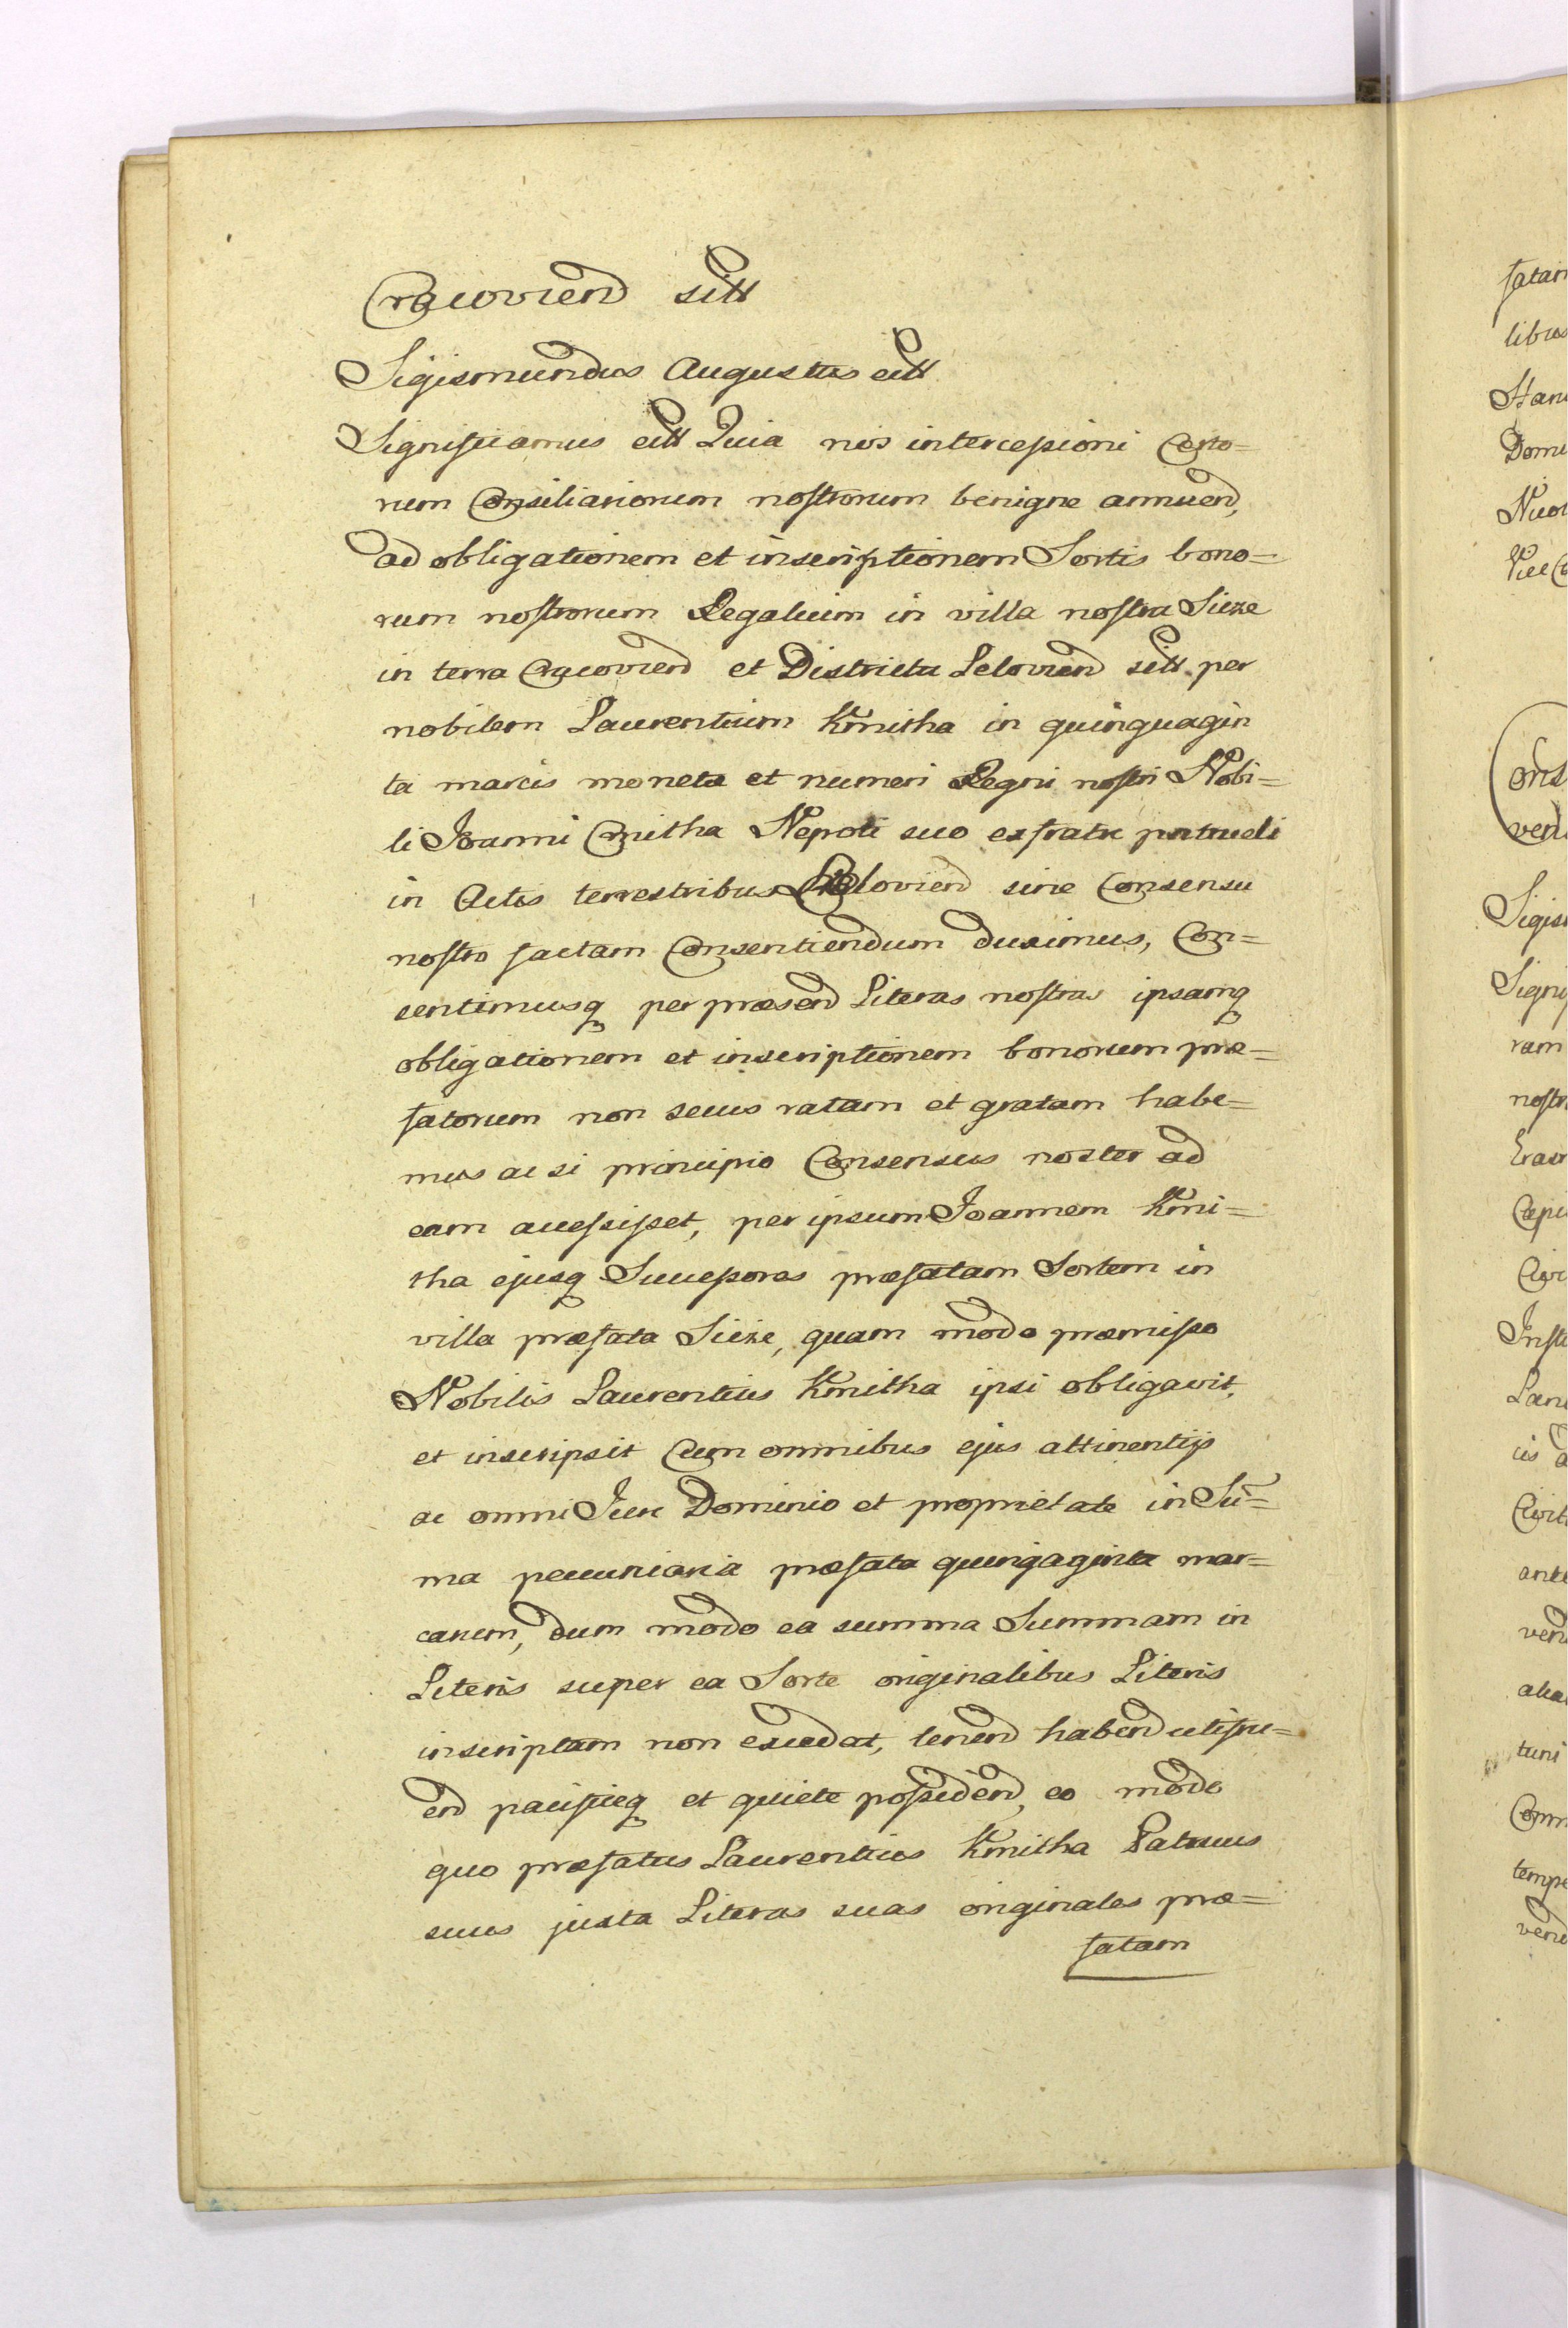 Cracoviend sitt
Sigismundus Augustus ett
Significamus ett Quia nos intercessioni Certo=
rum Consiliariorum nostrorum benigne annuend,
ad obligationem et inscriptionem Sortis bono=
rum nostrorum Regalium in villa nostra Sieze
in terra Cracoviend et Districtu Leloviend sitt per
nobilem Laurentium Kmitha in quinquagin
ta marcis moneta et numeri Regni nostri Nobi=
li Joanni Cmitha Nepoti suo ex fratre patrueli
in Actis terrestribus Leloviend sine Consensu
nostro factam Consentiendum duximus, Con=
sentimusq per præsend Literas nostras ipsamq
obligationem et inscriptionem bonorum præ=
fatorum non secus ratam et gratam habe=
mus ac si principio Consensus noster ad
eam accessisset, per ipsum Joannem Kmi=
tha ejusq Successores præfatam Sortem in
villa præfata Sieze, quam modo præmisso
Nobilis Laurentius Kmitha ipsi obligavit,
et inscripsit Cum omnibus ejus attinentijs
ac omni Jure Dominio et proprietate in Su=
ma pecuniaria præfata quinqaginta mar=
carum, dum modo ea summa Summam in
Literis super ea Sorte originalibus Literis
inscriptam non excedat, tenend habend utifru=
end pacificeq et quiete possidend, eo modo
quo præfatus Laurentius Kmitha Patruus
suus juxta Literas suas originales præ=
fatam
fatam
libus
Stan
Domi
Nicol
Vice C
Cons
vend
Sigis
Signif
ram
nostr
Eras
Capi
Civi
Insti
Lan
cis a
Civit
ante
vend
alia
tuni
Comm
tempo
vend